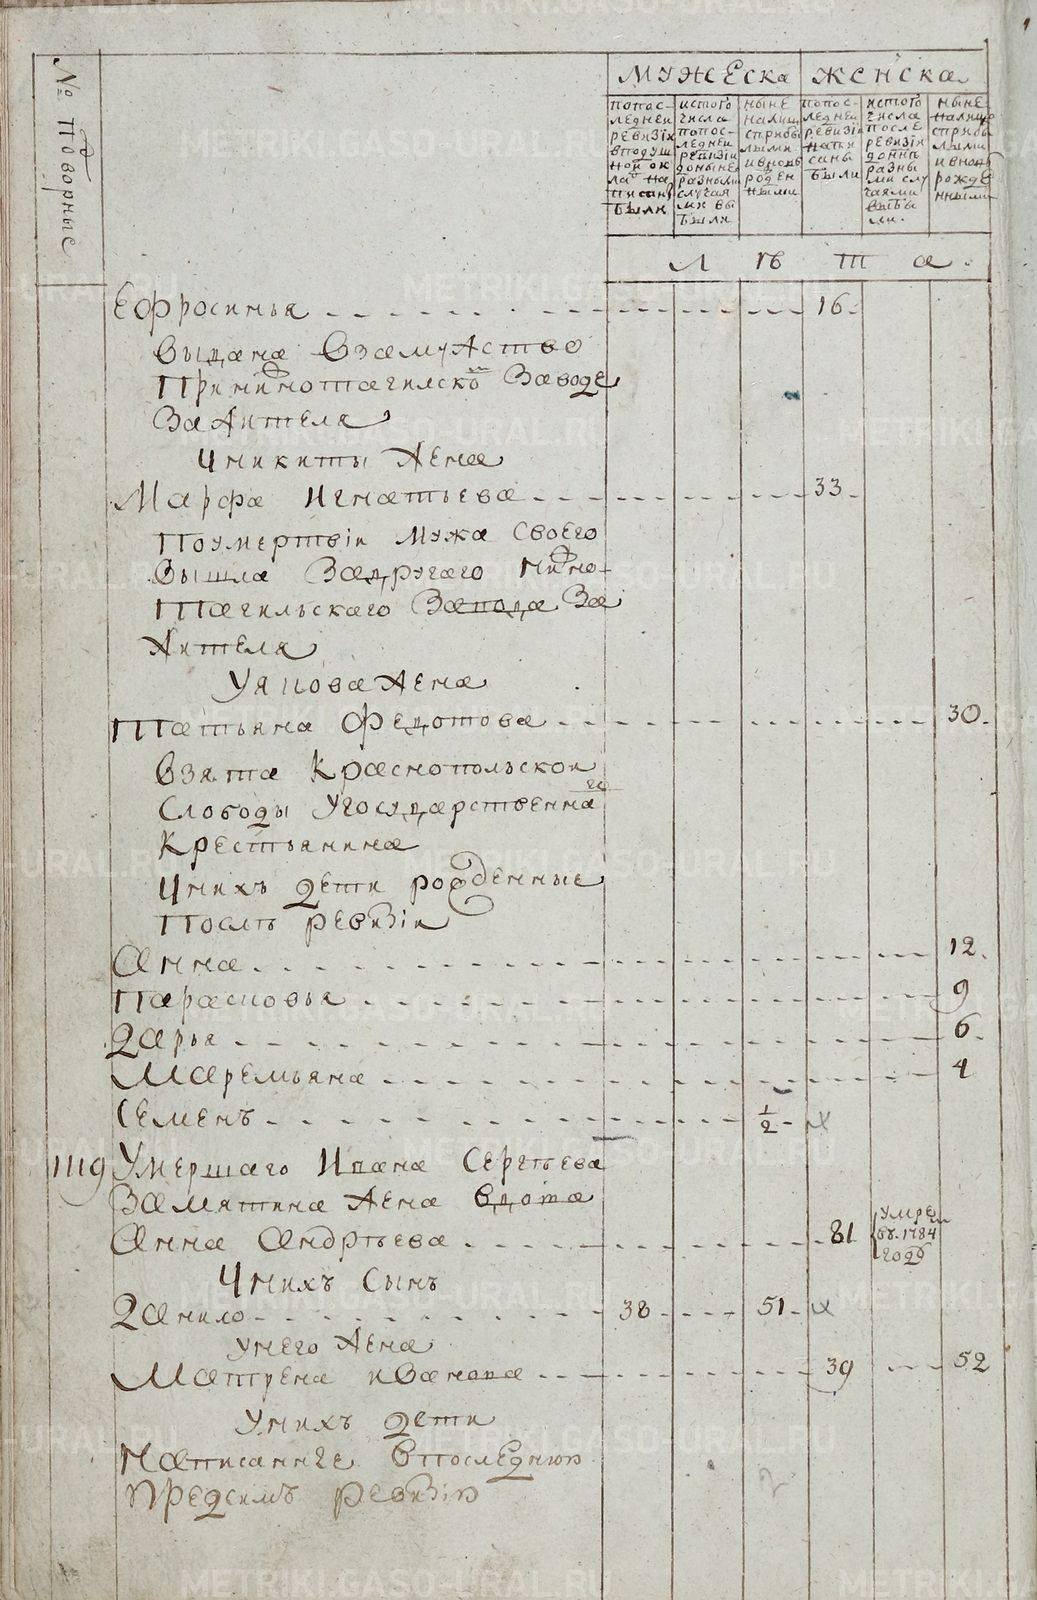 № Подворные
МУЖЕСКА
ЖЕНСКА
попос-
ледней
ревизіи
вподуш
ной ок
ладъ на
писаны
были
истого
числа
попос-
ледней
ревизіи
доныне
разными
случая
ми вы
были
ныне
налицо
сприбы
лыми
ивновь
рожден
ными
попос-
ледней
ревизіи
напи
саны
были
истого
числа
после
ревизіи
доныне
разны
ми слу
чаями
выбы
ли.
ныне
налице
сприбы
лыми
ивновь
рожде
нными
Лѣта.
Ефросинья 16
выдана взамужство
Принижнотагилскомъ Заводе
Зажителя
Уникиты жена
Марфа Игнатьева 33
Поумертвіи Мужа Своего
вышла Задругаго нижно-
Тагильскаго Завода За
жителя
Уякова жена
Татьяна Федотова 30.
взята Краснопольской
Слободы Угосударственнаго
Крестьянина
Унихъ дети рожденные
Послѣ ревизіи
Анна 12.
Парасковья 9
Дарья 6
Маремьяна 4
Семенъ 1/2
119 Умершаго Ивана Сергѣева
Замятина жена вдова
Анна Андрѣева 81 Умре
въ 1784
годѣ
Унихъ Сынъ
Данило 38 51
Унего жена
Матрена иванова 39 52
Унихъ дети
Написанные впоследнюю
предсимъ ревизію
METRIKI.GASO-URAL.RU